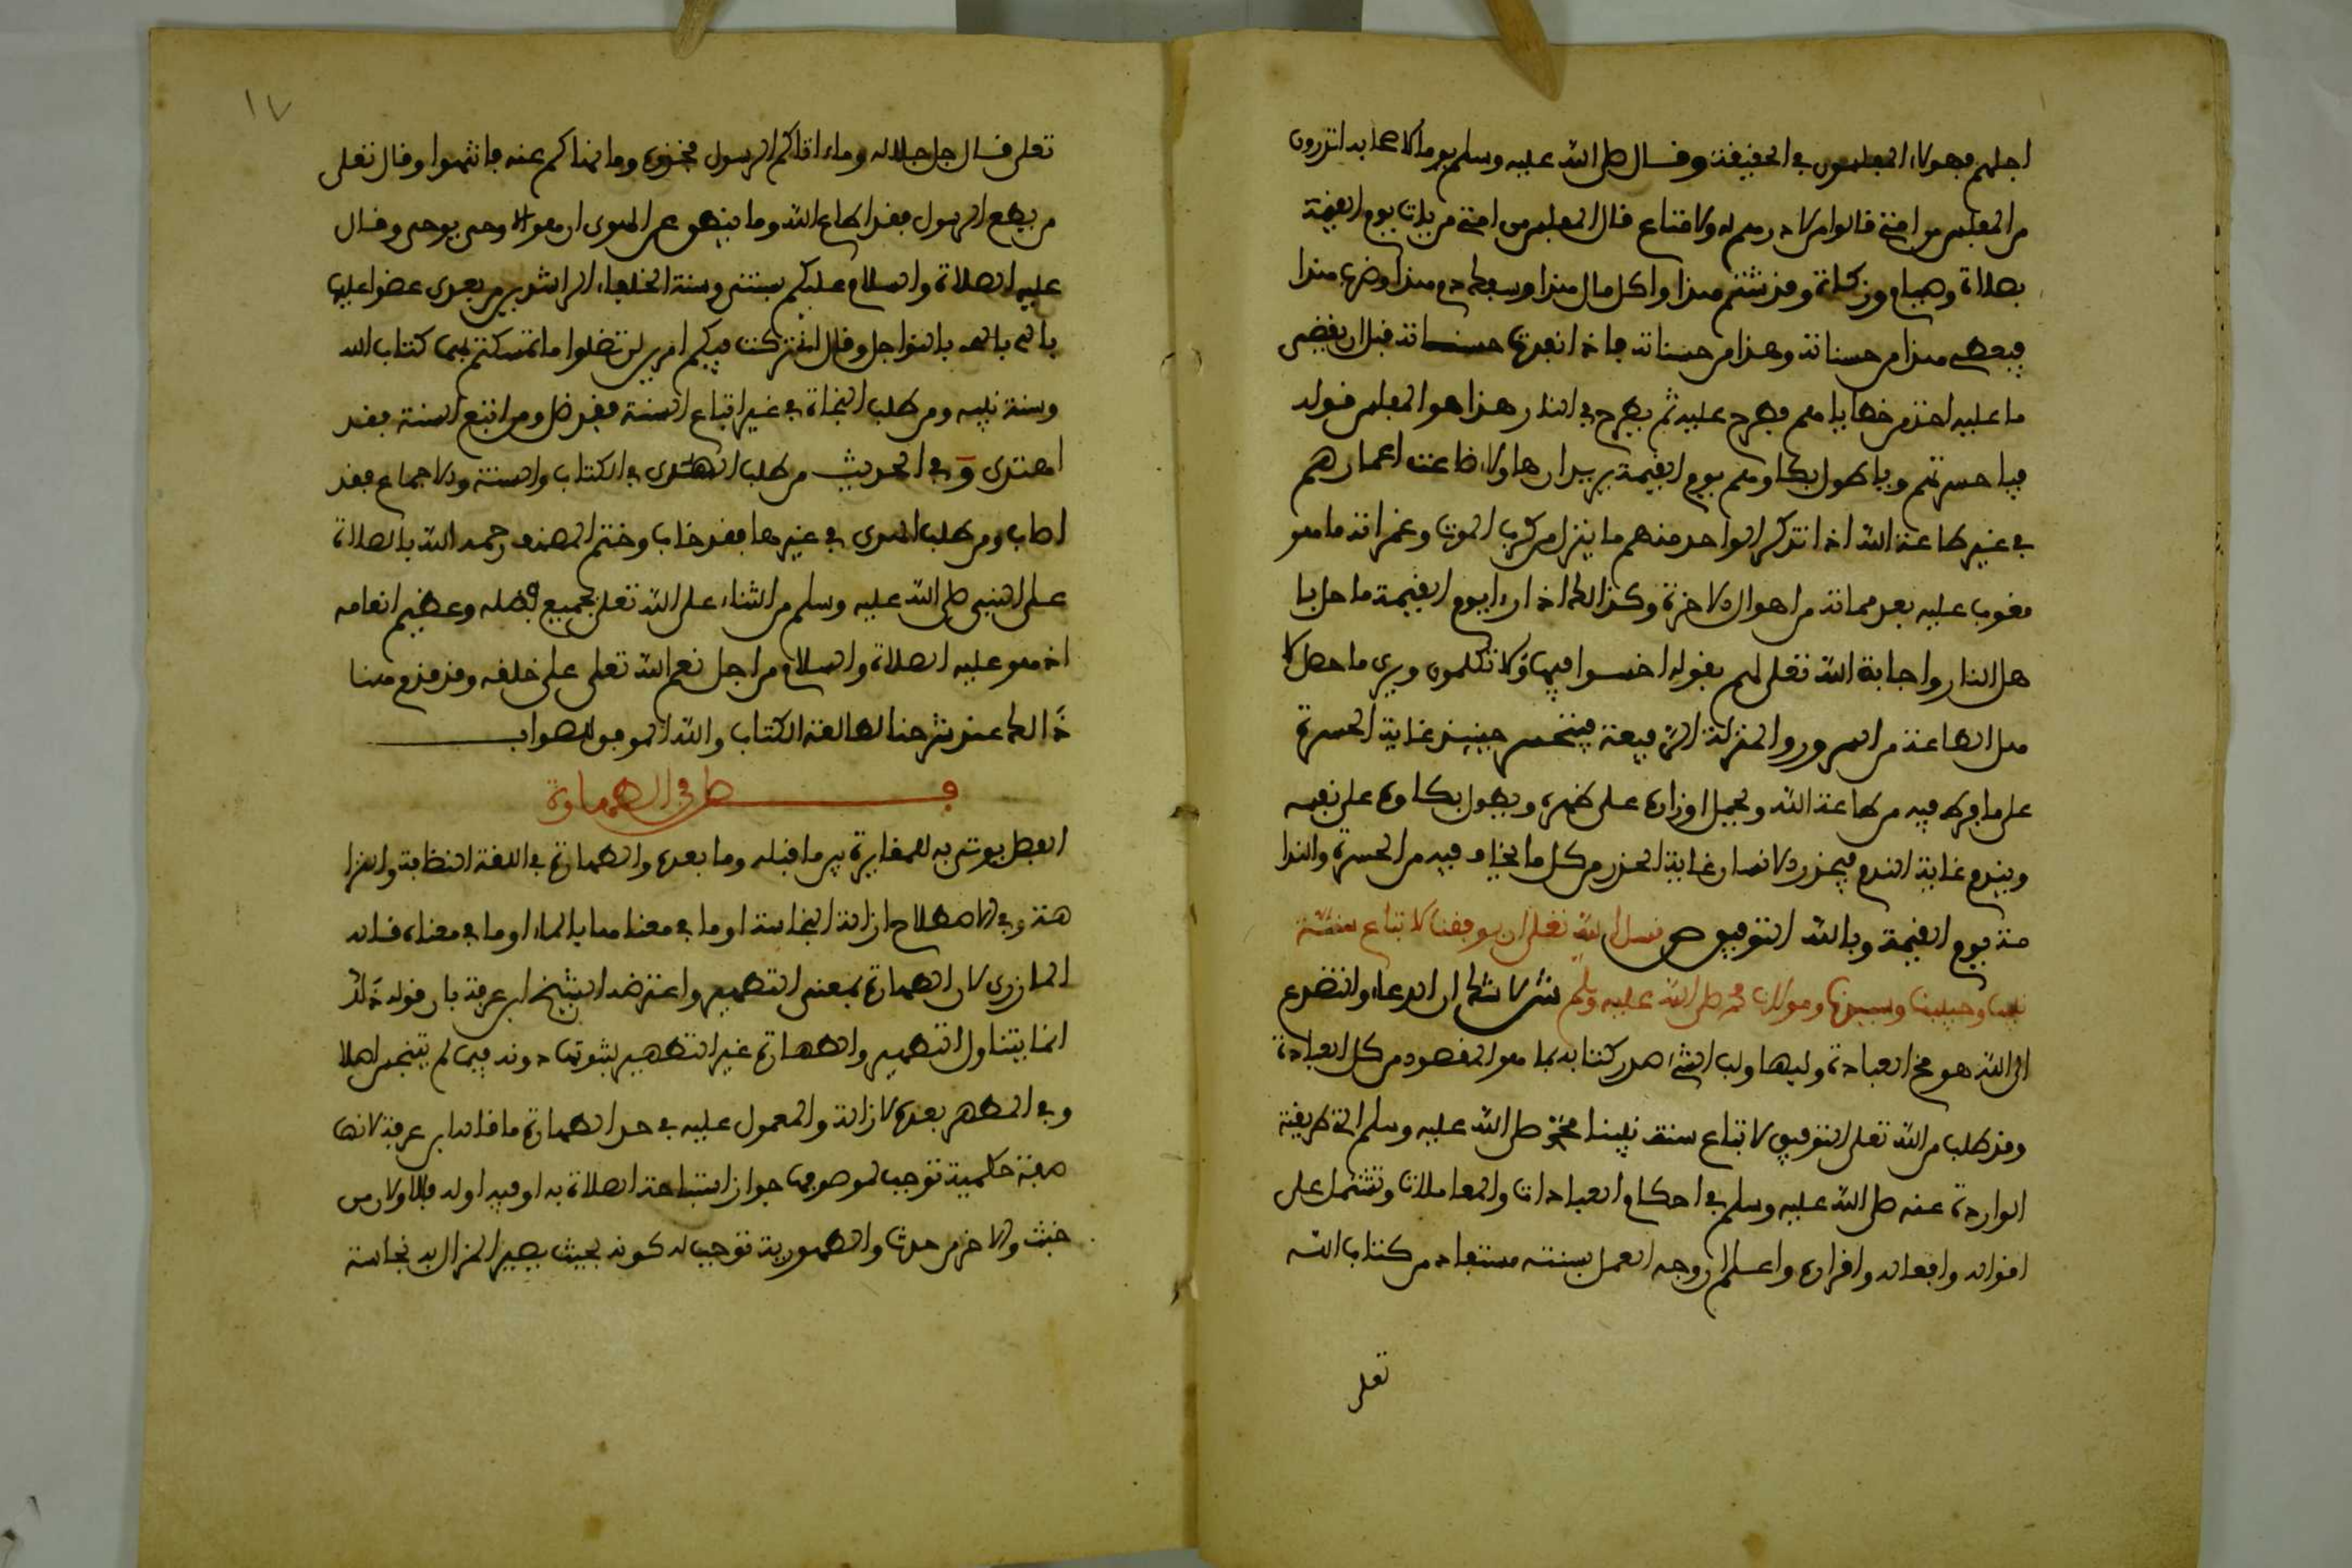 اجلهم فهولاء المفلسون في الحقيقة وقال صلى الله عليه وسلم يوما لاصحابه اتدرون
من المفلس من امتي قالوا من لا درهم له ولا متاع قال المفلس من امتي من يات يوم القيمة
بصلاة وصيام وزكاة وقد شتم هذا واكل مال هذا وسفك دم هذا وضرب هذا
فيعطى هذا من حسناته وهذا من حسناته فاذا نفدت حسناته قبل ان يقضى
ما عليه اخذ من خطاياهم فطرح عليه ثم يطرح في النار هذا هو المفلس قوله
فيا حسرتهم ويا طول بكاوهم يوم القيمة يريد ان هاولاء ضاعت اعمارهم
في غير طاعة الله اذا تذكر الواحد منهم ما ينزل من كرب الموت وغمراته ما هو
مغوب عليه بعد مماته من اهوال الاخرة وكذالك اذا راء يوم القيمة ما حل با
هل النار واجابة الله تعلى لهم بقوله اخسوا فيها ولا تكلمون ويرى ما حصل لا
هل الطاعة من السرور والمنزلة الرفيعة فيتحسر حينيذ غاية الحسرة
على ما فرط فيه من طاعة الله ويحمل اوزاره على ظهره ويطول بكاوه على نفسه
ويندم غاية الندم فيحذر الانسان غاية الحذر من كل ما يخاف فيه من الحسرة والندا
مة يوم القيمة وبالله التوفيق ص نسل الله تعلى ان يوفقنا لاتباع سنة
نبينا وحبيبنا وسيدنا ومولانا محمد صلى الله عليه وسلم ش لا شك ان الدعاء والتضرع
الى الله هو مخ العبادة ولبها ولب الشيء صدر كتابه بما هو المقصود من كل العبادة
وقد طلب من الله تعلى التوفيق لاتباع سنة نبينا محمد صلى الله عليه وسلم اي طريقة
الواردة عنه صلى الله عليه وسلم في احكام العبادات والمعاملات وتشتمل على
اقواله وافعاله واقراره واعلم ان وجه العمل بسنته مستفاد من كتاب الله
تعلى
١٧
تعلى قال جل جلاله وما ءاتاكم الرسول فخذوه وما نهاكم عنه فانتهوا وقال تعلى
من يطع الرسول فقد اطاع الله وما ينطق عن الهوى ان هو الا وحي يوحى وقال
عليه الصلاة والسلام عليكم بسنتي وسنة الخلفاء الراشدين من بعدي عضوا عليها
بالنواجد وقال تركت فيكم امرين لن تضلوا ما تمسكتم بهما كتاب الله
وسنة نبيه ومن طلب النجاة في غير اتباع السنة فقد ضل ومن اتبع السنة فقد
اهتدى وفي الحديث من طلب الهدى في الكتاب والسنة والاجماع فقد
اصاب ومن طلب الهدى في غيرها فقد خاب وختم المصنف رحمه الله بالصلاة
على النبي صلى الله عليه وسلم من الثناء على الله تعلى بجميع فضله وعظيم انعامه
اذ هو عليه الصلاة والسلام من اجل نعم الله تعلى على خلقه وقد قدم هنا
ذالك عند شرحنا الكتاب والله الموفق للصواب
فصل في الطهارة
الفصل يوتى به للمغايرة بين ما قبله وما بعده والطهارة في اللغة النظافة والنزا
هة وفي الاصطلاح ازالة النجاسة او ما في معناها بالماء او ما في معناه قاله
المازري لان الطهارة بمعنى التطهير واعترضه الشيخ ابن عرفة بان قوله ذلك
انما يتناول التطهير والطهارة غير التطهير لثبوتها دونه فيما لم يتنجس اصلا
وفي المطهر بعد الازالة والمعمول عليه في حد الطهارة ما قاله ابن عرفة لانها
صفة حكمية توجب لموصوفها جواز استباحة الصلاة به او فيه او له فالاولان من
خبث والاخر من حدث والطهورية توجب له كونه بحيث يصير المزال به نجاسة